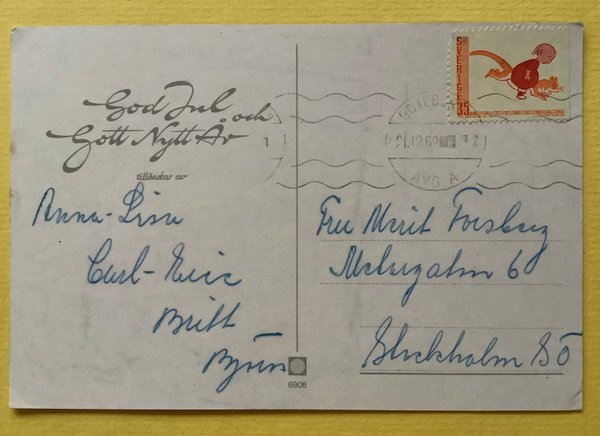 God Jul och
Gott Nytt År
tillönskar av
Anna-Lisa
Carl-Eric
Britt
Björn
6906
SVERIGE 35
GÖTEBORG
21.12.69
AVG A
Fru Marit Forsberg
6
Stockholm SÖ